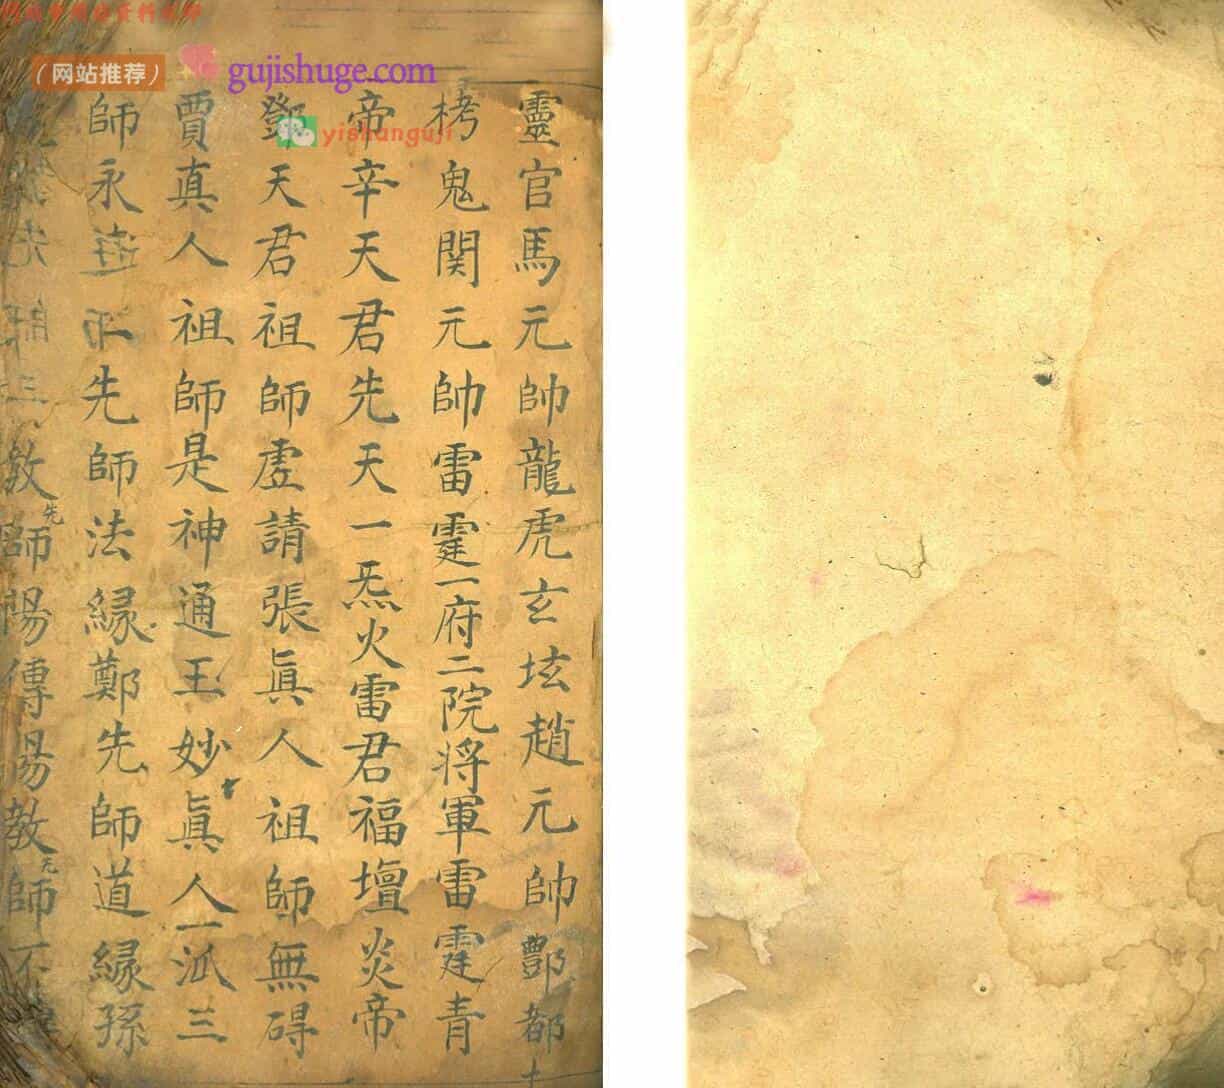 （网站推荐）
gujishuge.com
yishanguji
靈官馬元帥龍虎玄坛趙元帥酆都十
栲鬼関元帥雷霆一府二院将軍雷霆青
帝辛天君先天一炁火雷君福壇炎帝
鄧天君祖師虚請張眞人祖師無碍
賈真人祖師是神通王妙眞人一派三
師永先師法緣鄭先師道緣孫
三教師陽傳陽教師不
先
元